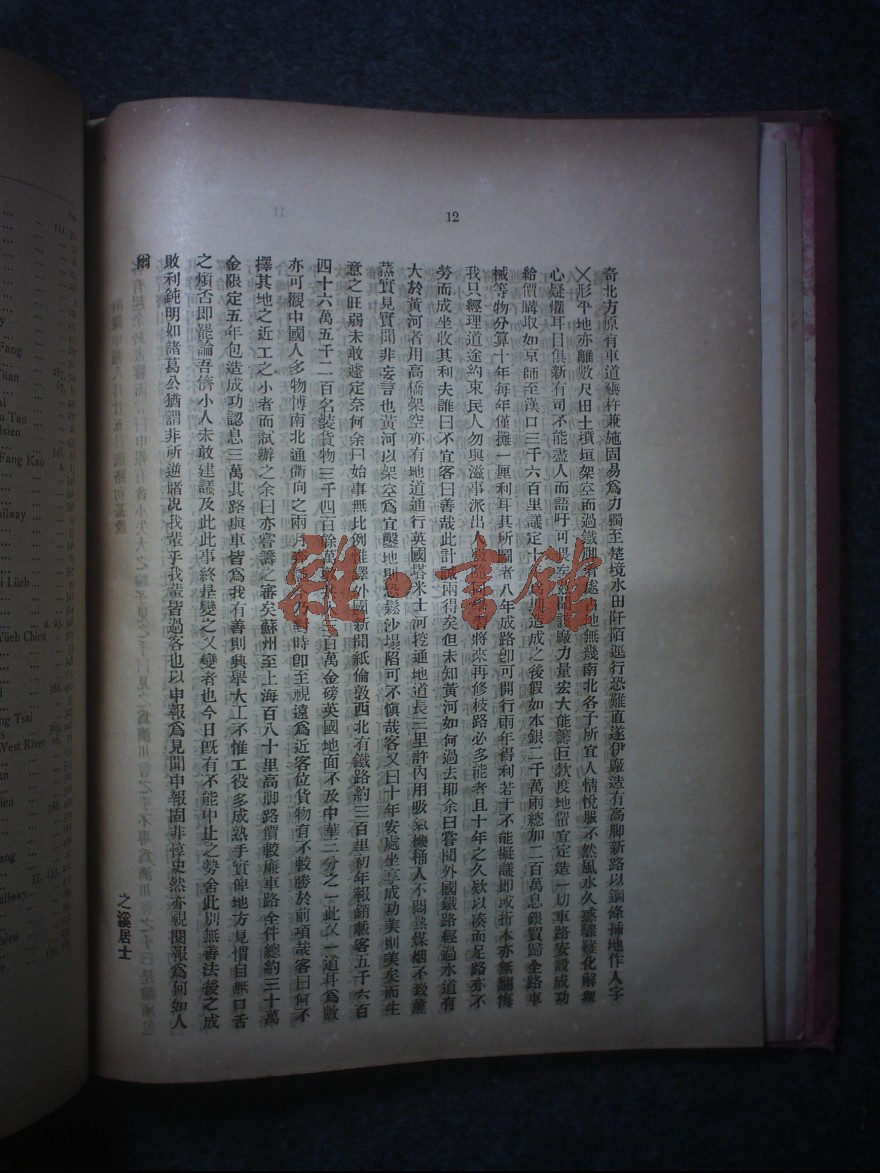 12
奇北方原有車道橇杵兼施固易爲力獨至楚境水田阡陌逕行恐難直遂伊廠造有高脚新路以鋼條插地作人字
乂形平地亦離數尺田土墳垣架空而過鐵脚有處占地無幾南北各于所宜人情悅服不然風水久惑驟難化解羣
心疑懼耳目俱新有司不能盡人而語吁可畏矣 廠力量宏大能籌巨款度地留宜定造一切車路安設成功
給價購取如京師至漢口三千六百里議定十 造成之後假如本銀二千萬兩總加二百萬息銀買歸全路車
械等物分算十年每年僅攤一厘利耳其所圖者八年成路卽可開行兩年得利若干不能擬議卽或折本亦無翻悔
我只經理道途約束民人勿與滋事派出人 將來再修枝路必多能者且十年之久欵以凑而足路亦不
勞而成坐收其利夫誰曰不宜客曰善哉此計 兩得矣但未知黃河如何過去耶余曰嘗聞外國鐵路經過水道有
大於黃河者用高橋架空亦有地道通行英國塔米士河挖通地道長三里許內用吸氣機桶人不悶熱煤烟不致薰
蒸實見實聞非妄言也黃河以架空爲宜鑿地則恐鬆沙塌陷可不愼哉客又曰十年安處坐享成功美則美矣而生
意之旺弱未敢遽定奈何余曰始事無比例惟譯外國新聞紙倫敦西北有鐵路約三百里初年報銷載客五千六百
四十六萬五千二百名裝貨物三千四百餘萬 三百萬金磅英國地面不及中華二分之一此又一道耳爲數
亦可觀中國人多物博南北通衢向之兩月 今乃對時卽至視遠爲近客位貨物有不較勝於前項哉客曰何不
擇其地之近工之小者而試辦之余曰亦嘗籌之審矣蘇州至上海百八十里高脚路價較廉車路全件總約三十萬
金限定五年包造成功認息三萬其路與車皆爲我有善則興舉大工不惟工役多成熟手實俾地方見慣自無口舌
之煩否卽罷論吾儕小人未敢建議及此此事終是變之又變者也今日旣有不能中止之勢舍此別無善法後之成
敗利鈍明如諸葛公猶謂非所逆睹况我輩乎我輩皆過客也以申報爲見聞申報固非惇史然亦視閱報爲何如人
爾
之溪居士
雜·書館
11
Fang
Yuan
Tao
Hsien
Fang Kao
Railway
Lüeh
Yüeh Chien
Tsai
West River